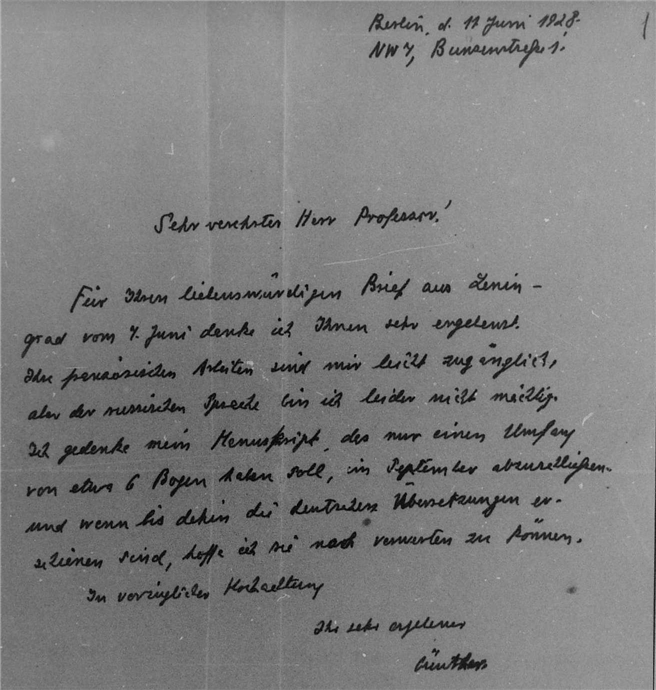 Berlin, d. 11 Juni 1928.
NW 7, Bunsenstraße 1.
Sehr verehrter Herr Professor!
Für Ihren liebenswürdigen Brief aus Lenin-
grad vom 7. Juni danke ich Ihnen sehr ergebenst.
Ihre französischen Arbeiten sind mir leicht zugänglich,
aber der russischen Sprache bin ich leider nicht mächtig.
Ich gedenke mein Manuskript, das nur einen Umfang
von etwa 6 Bogen haben soll, im September abzuschließen
und wenn bis dahin die deutschen Übersetzungen er-
schienen sind, hoffe ich sie noch verwerten zu können.
In vorzüglicher Hochachtung
Ihr sehr ergebener